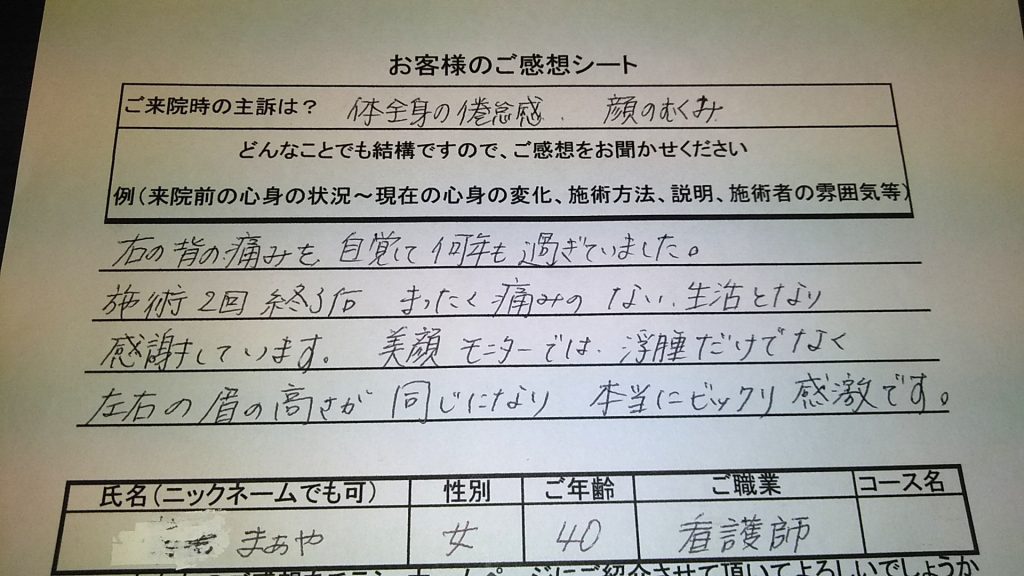 お客様のご感想シート
ご来院時の主訴は? 体全身の倦怠感. 顔のむくみ
どんなことでも結構ですので、ご感想をお聞かせください
例(来院前の心身の状況～現在の心身の変化、施術方法、説明、施術者の雰囲気等)
右の背の痛みを 自覚て 何年も 過ぎていました。
施術 2回 終了后 まったく 痛みの ない.生活となり
感謝しています。 美顔 モニターでは. 浮腫だけでなく
左右の眉の高さが 同じになり 本当にビックリ 感激です。
氏名(ニックネームでも可) 性別 ご年齢 ご職業 コース名
まぁや 女 40 看護師
ホームページにご紹介させて頂いてよろしいでしょうか